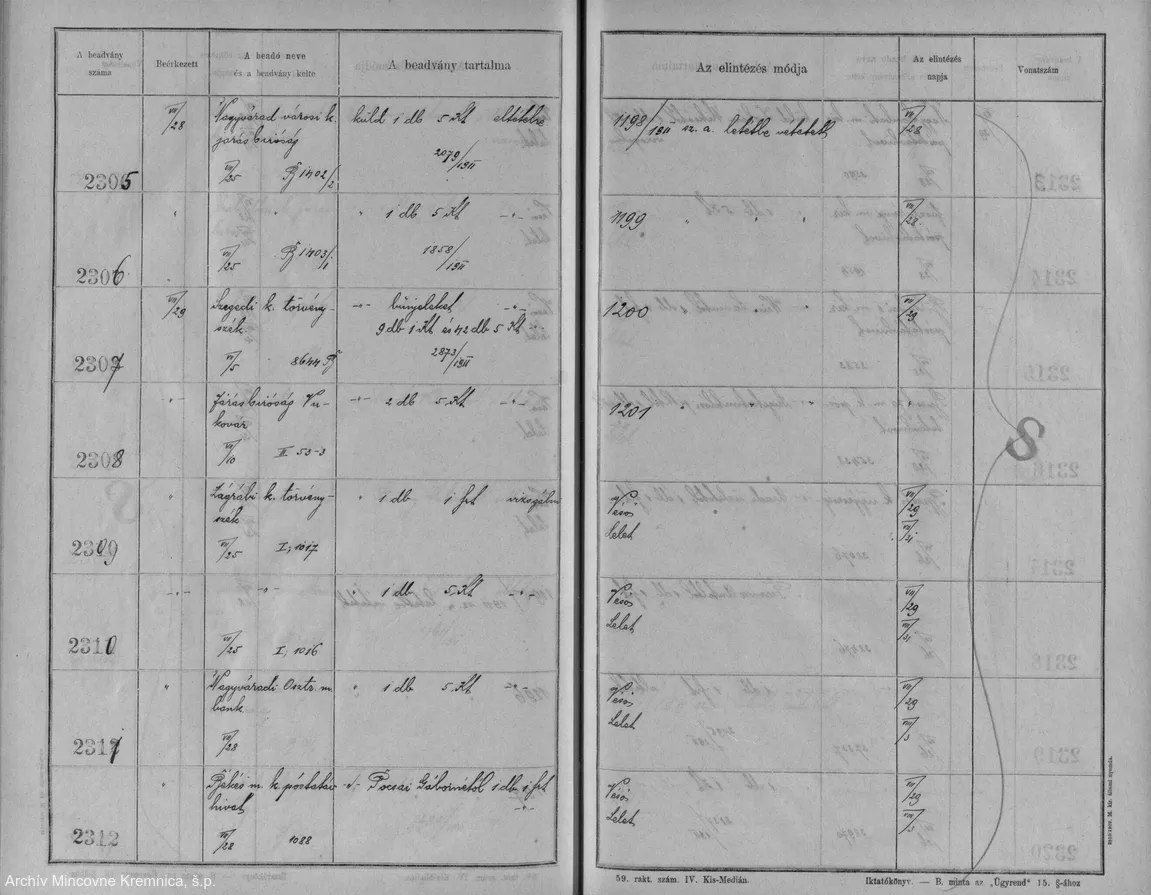 A beadvány száma
Beérkezett
A beadó neve és a beadvány kelte
A beadvány tartalma
Az elintézés módja
Az elintézés napja
Vonatszám
2305
VII/28
Nagyvárad városi k. járásbíróság
VII/25 B 1402/2
küld 1 db 5 Kt
2079/1911
1198/1911 sz. a. letétbe vétetett
VII/28
2306
" "
VII/25 B 1403/1
" 1 db 5 Kt -"-
1858/1911
1199 " " "
VII/28
2307
VII/29
Szegedi k. törvény-
szék
VII/5 8644 B
-"- bűnjeleket -"-
9 db 1 Kt és 42 db 5 Kt -"-
2873/1911
1200 " "
VII/29
2308
-"-
Járásbíróság Vu-
kovár
VII/10 II 53-3
-"- 2 db 5 Kt -"-
1201 " " "
"
2309
"
Zágrábi k. törvény-
szék
VII/25 I; 1017
" 1 db 1 frt
Vésős
Lelet
VII/29
2310
-"- -"-
VII/25 I; 1016
" 1 db 5 Kt
Vésős
Lelet
VII/29
2311
"
Nagyváradi Osztr. m.
bank
VII/28
" 1 db 5 Kt
Vésős
Lelet
VII/29
VIII/3
2312
Békés m. k. póstatáv
hivat
VII/28 1088
-"- Pocsai Gáborné́tól 1 db 1 frt
-"-
Vésős
Lelet
VII/29
VIII/3
8
59. rakt. szám. IV. Kis-Medián.
Iktatókönyv. — B. minta az „Ügyrend" 15. §-ához
Archív Mincovne Kremnica, š.p.